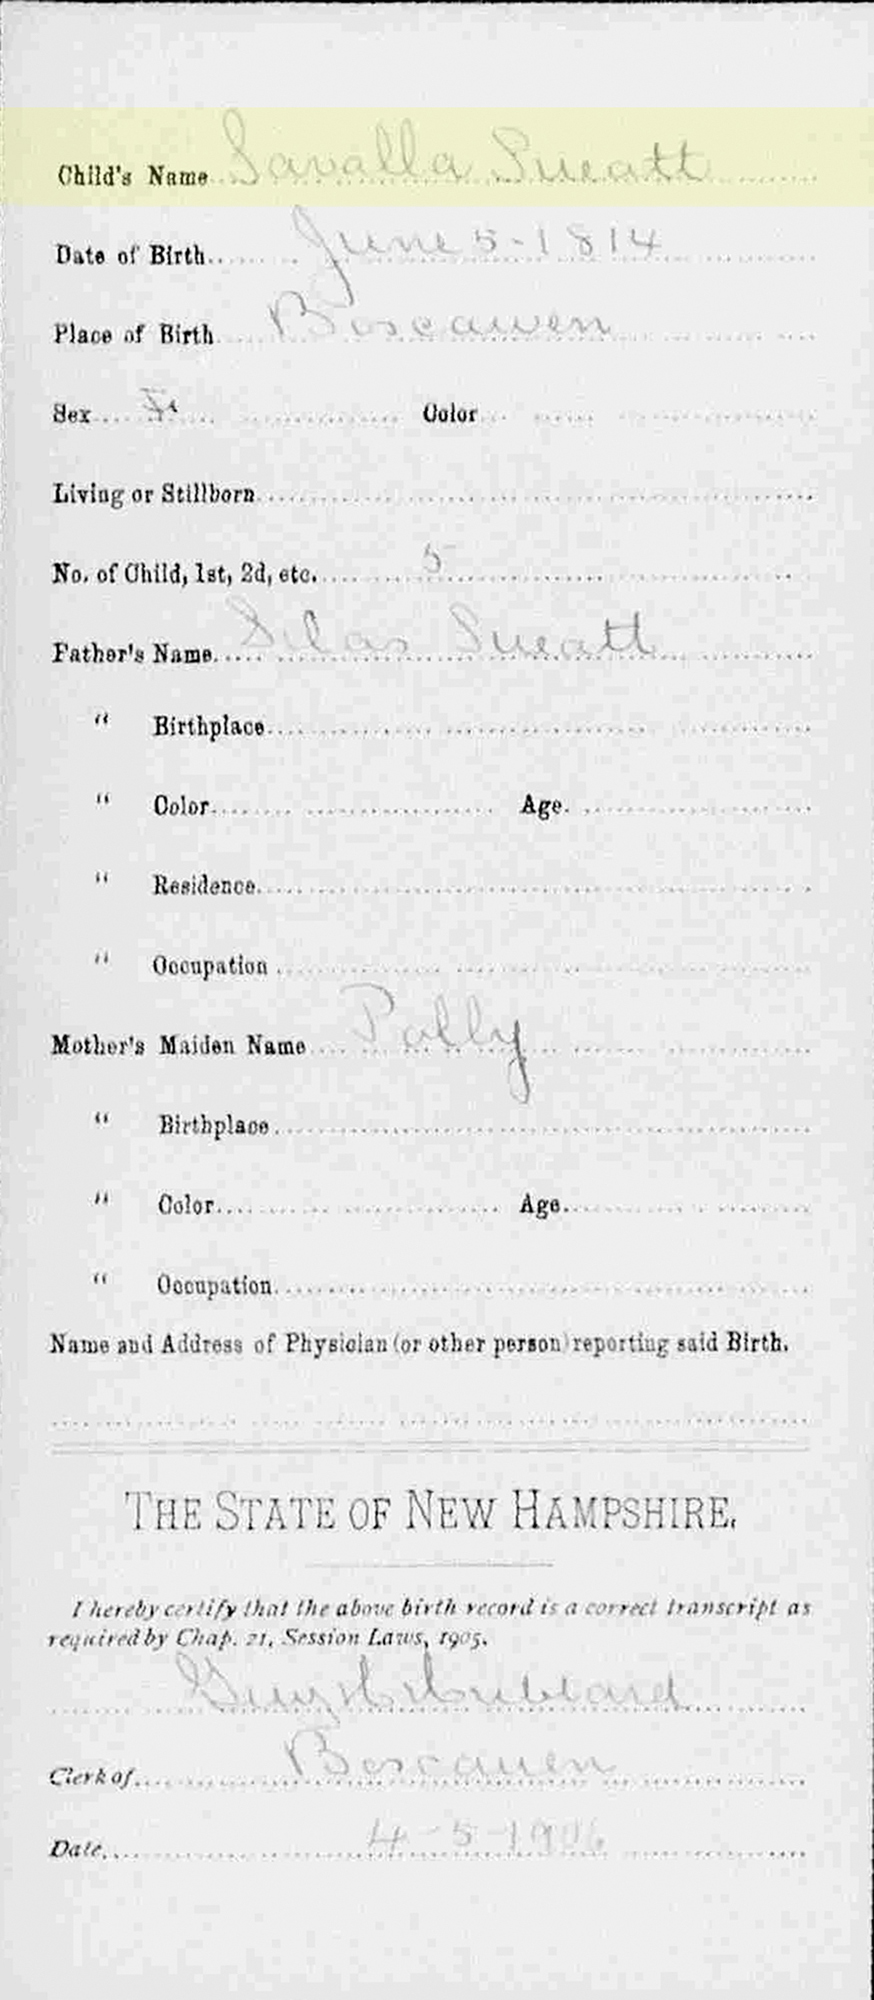 Child's Name Savalla Sweatt
Date of Birth June 5-1814
Place of Birth Boscawen
Sex F. Color
Living or Stillborn
No. of Child, 1st, 2d, etc. 5
Father's Name Silas Sweatt
" Birthplace
" Color Age
" Residence
" Occupation
Mother's Maiden Name Polly
" Birthplace
" Color Age
" Occupation
Name and Address of Physician (or other person) reporting said Birth.
THE STATE OF NEW HAMPSHIRE.
I hereby certify that the above birth record is a correct transcript as
required by Chap. 21, Session Laws, 1905.
Guy H Hubbard
Clerk of Boscawen
Date 4-5-1906